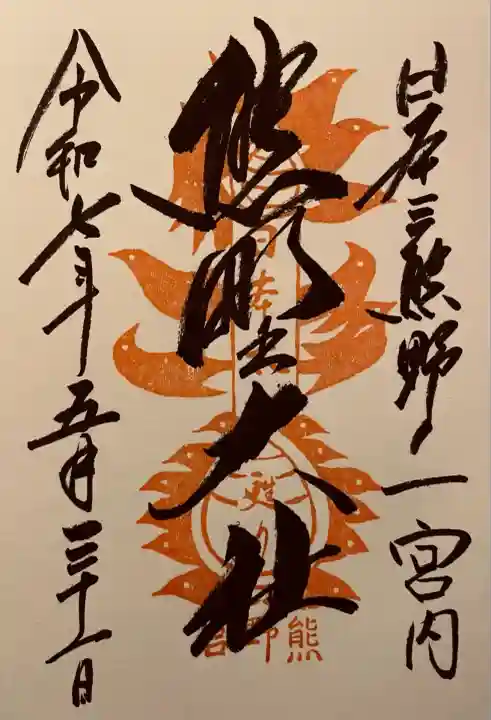 日本三熊野ノ一宮内
熊野大社
令和七年五月三十一日
熊野